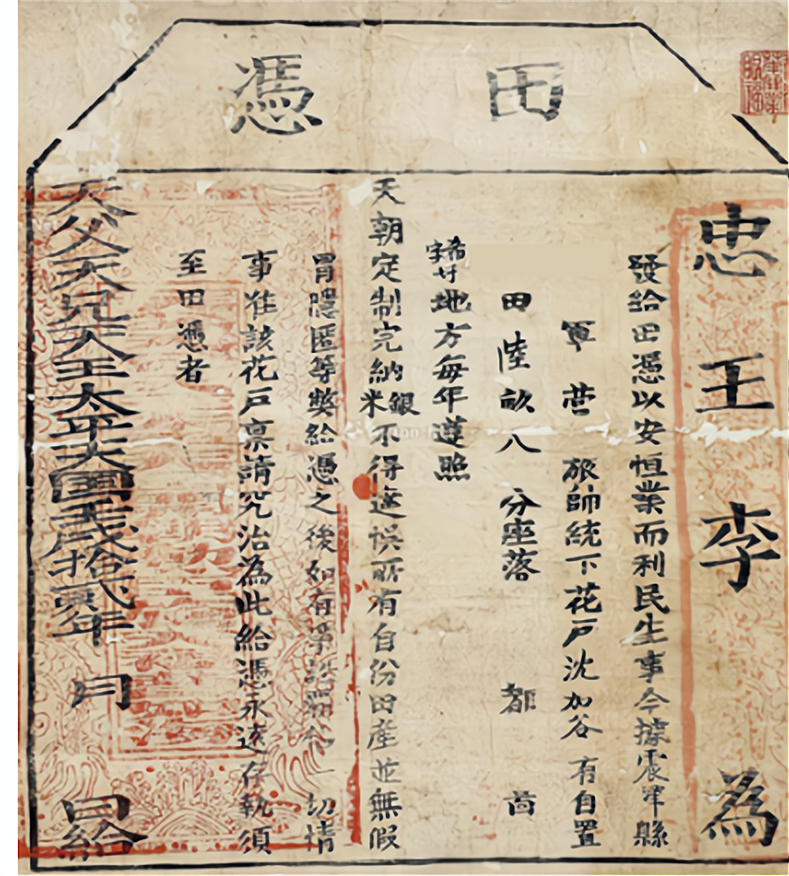 田憑
忠王李為
發給田憑以安恒業而利民生事今據震澤縣
軍營 旅帥統下花戶沈加谷有自置
田陸畝八分座落 都 啚
地方每年遵照
天朝定制完納銀米不得遲悞所有自份田產並無假
冒隱匿等獘給憑之後如有爭訟霸佔一切情
事准該花戶禀請究治為此給憑永遠存執須
至田憑者
天父天兄天王太平天囯壬戌拾貳年 月 日給